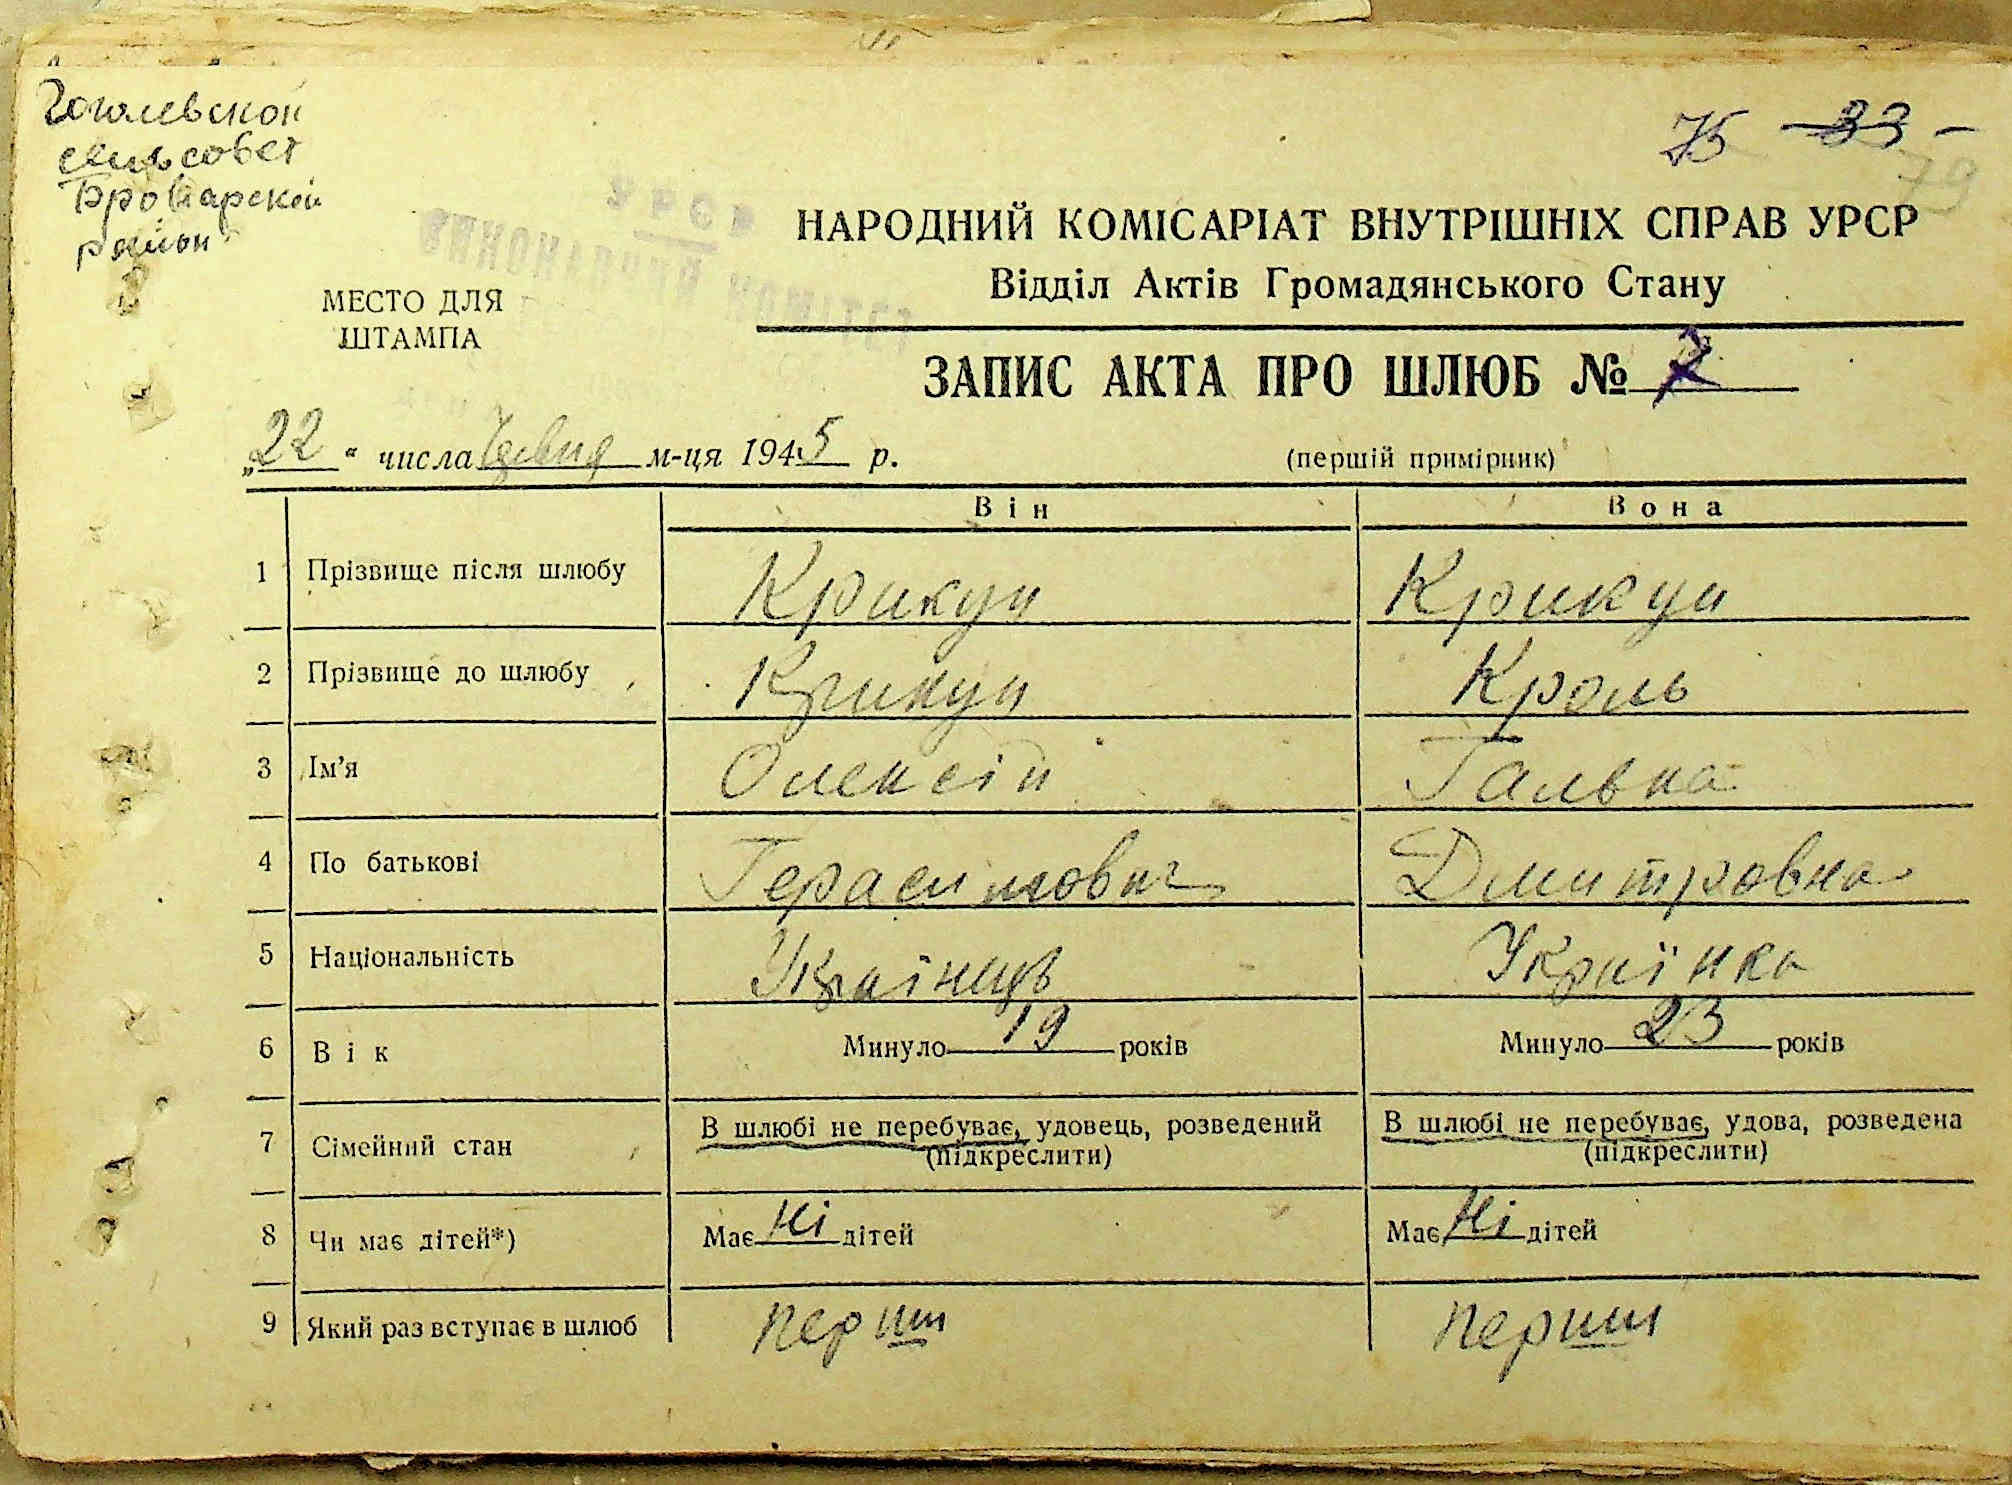 Гоголевскои
сильсовет
Броварский
район
75 33 -
79
НАРОДНИЙ КОМІСАРІАТ ВНУТРІШНІХ СПРАВ УРСР
Відділ Актів Громадянського Стану
МЕСТО ДЛЯ
ШТАМПА
ЗАПИС АКТА ПРО ШЛЮБ № 7
„22“ числа м-ця 1945 р. (перший примірник)
Він Вона
1 Прізвище після шлюбу Крикун Крикун
2 Прізвище до шлюбу Крикун Кроль
3 Ім’я Олексій Гальна
4 По батькові Герасимович Дмитровна
5 Національність Українець Українка
6 Вік Минуло 19 років Минуло 23 років
7 Сімейний стан В шлюбі не перебуває, удовець, розведений В шлюбі не перебуває, удова, розведена
(підкреслити) (підкреслити)
8 Чи має дітей*) Має Ні дітей Має Ні дітей
9 Який раз вступає в шлюб перши перши